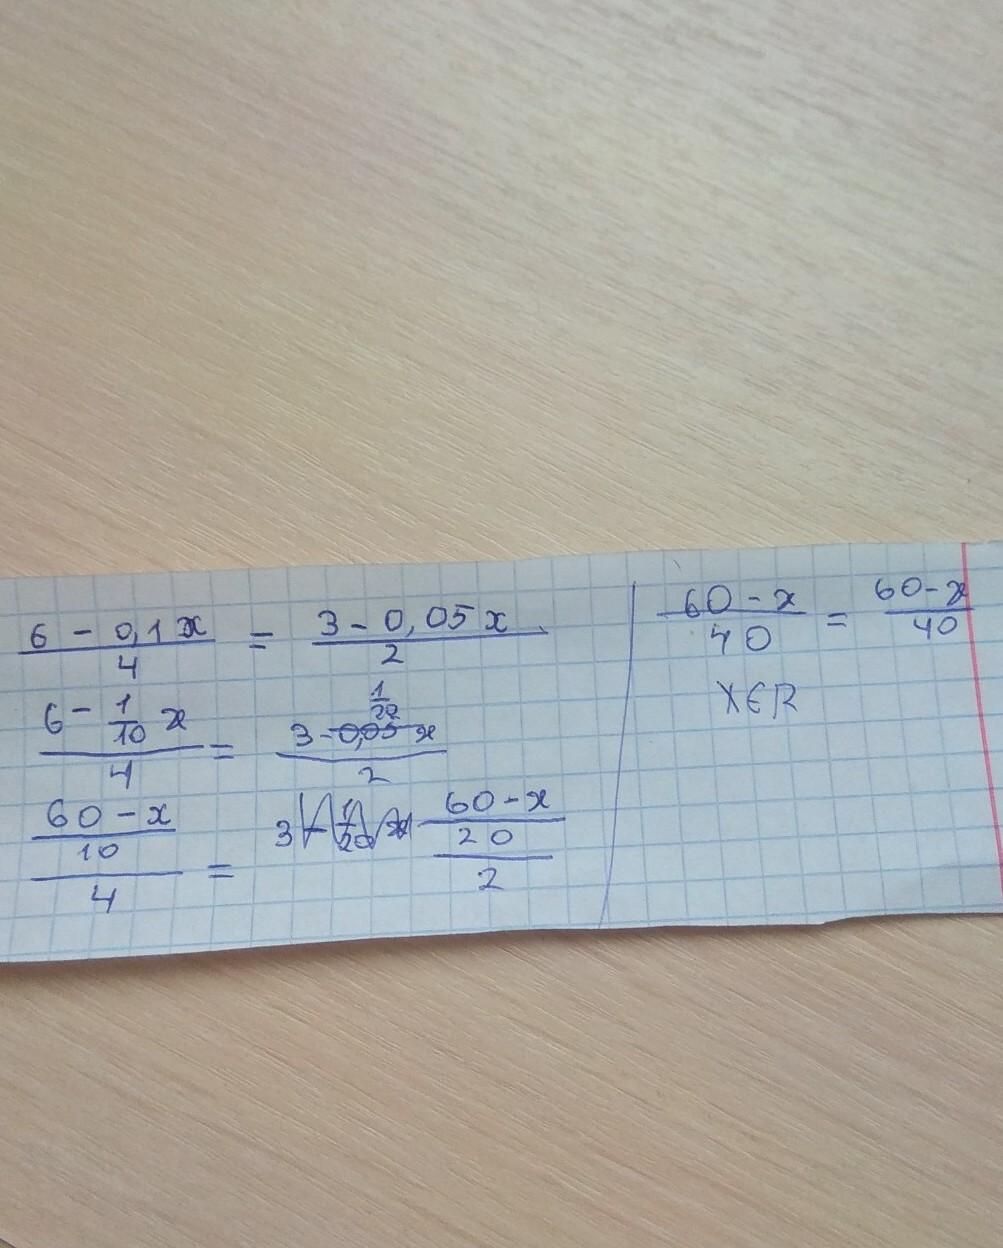 (6 - 0,1x)/4 = (3 - 0,05x)/2
(6 - 1/10 x)/4 = (3 - 1/20 x)/2
((60 - x)/10)/4 = ((60 - x)/20)/2
(60 - x)/40 = (60 - x)/40
X∈R